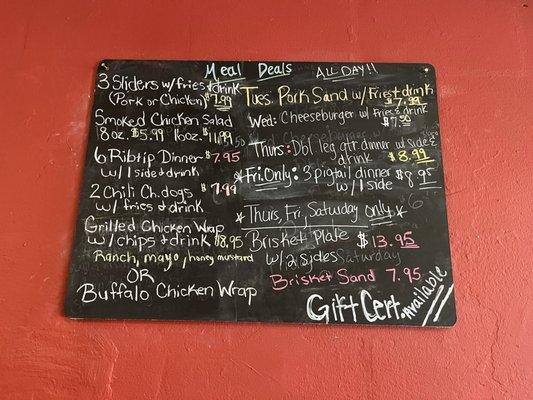 Meal Deals ALL DAY!!
3 Sliders w/fries + drink
(Pork or Chicken) $7.99
Smoked Chicken Salad
8oz. $5.99 16oz. $11.99
6 Ribtip Dinner $7.95
w/1 side + drink
2 Chili Ch. dogs $7.99
w/ fries + drink
Grilled Chicken Wrap
w/ chips + drink $8.95
Ranch, mayo, honey mustard
OR
Buffalo Chicken Wrap
Tues. Pork Sand w/ Fries + drink
$7.99
Wed: Cheeseburger w/ Fries & drink
Thurs: Dbl leg qtr dinner w/ side &
drink $8.99
*Fri. Only: 3 pigtail dinner $8.95
w/ 1 side
*Thurs, Fri, Saturday only*
Brisket Plate $13.95
w/ 2 sides Saturday
Brisket Sand 7.95
Gift Cert. Available